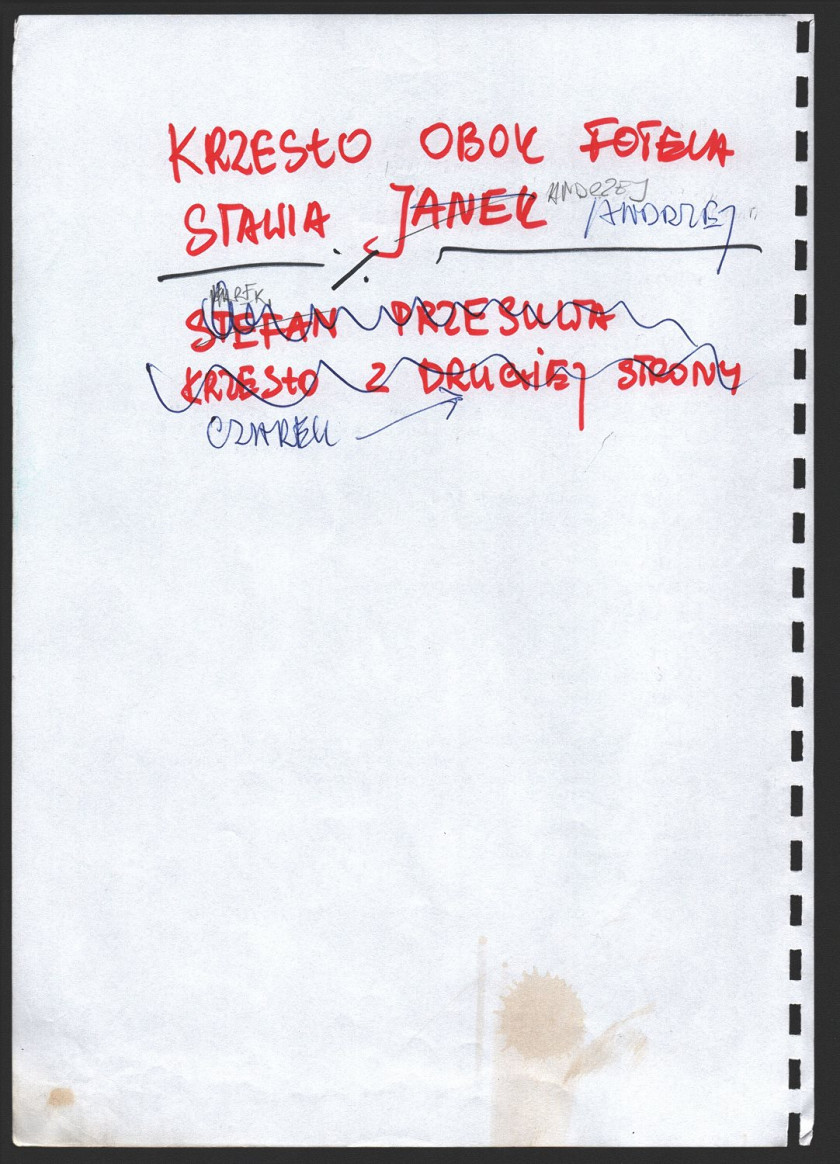 KRZESŁO OBOK FOTELA
STAWIA JANEK ANDRZEJ ANDRZEJ
MAREK
STEFAN PRZESUWA
KRZESŁO Z DRUGIEJ STRONY
CZAREK